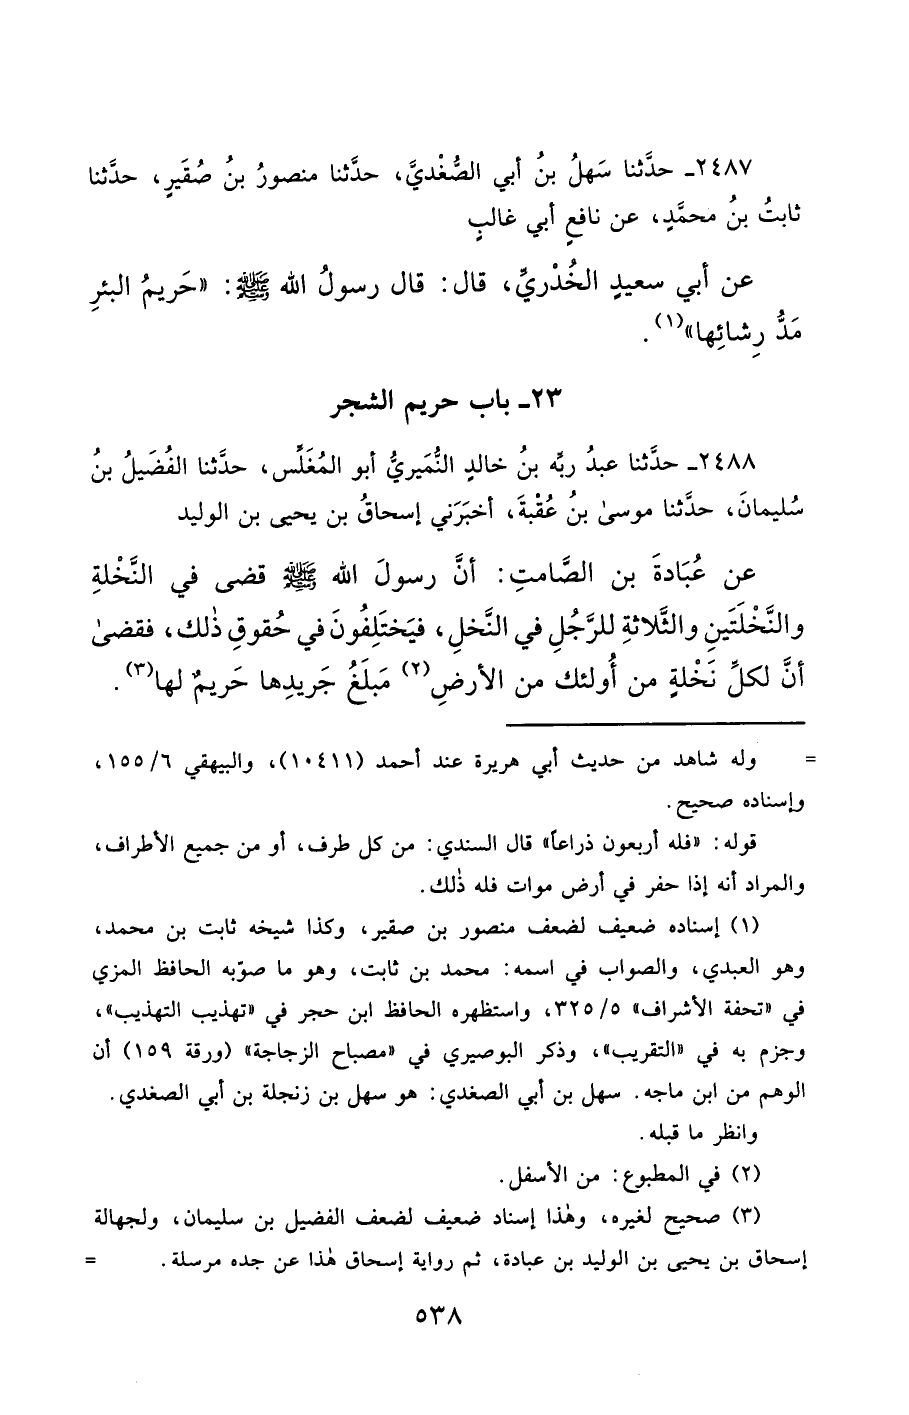 ٢٤٨٧ـ حدَّثنا سَهلُ بنُ أبي الصُّغْديَّ، حدَّثنا منصورُ بنُ صُقَيرٍ، حدَّثنا
ثابتُ بنُ محمَّدٍ، عن نافعٍ أبي غالبٍ
عن أبي سعيدٍ الخُدْريِّ، قال: قال رسولُ الله ﷺ: «حَريمُ البئرِ
مَدُّ رِشائِها»(١).
٢٣ـ باب حريم الشجر
٢٤٨٨ـ حدَّثنا عبدُ ربِّه بنُ خالدٍ النُّمَيريُّ أبو المُغَلِّس، حدَّثنا الفُضَيلُ بنُ
سُليمانَ، حدَّثنا موسىٰ بنُ عُقْبةَ، أخبَرَني إسحاقُ بن يحيى بن الوليد
عن عُبَادةَ بن الصَّامتِ: أنَّ رسولَ الله ﷺ قضى في النَّخْلةِ
والنَّخْلَتَينِ والثَّلاثةِ للرَّجُلِ في النَّخلِ، فيَختَلِفُونَ في حُقوقِ ذٰلك، فقضىٰ
أنَّ لكلِّ نَخْلةٍ من أُولئك من الأرضِ(٢) مَبلَغُ جَريدِها حَريمٌ لها(٣).
= وله شاهد من حديث أبي هريرة عند أحمد (١٠٤١١)، والبيهقي ٦/ ١٥٥،
وإسناده صحيح.
قوله: «فله أربعون ذراعاً» قال السندي: من كل طرف، أو من جميع الأطراف،
والمراد أنه إذا حفر في أرض موات فله ذٰلك.
(١) إسناده ضعيف لضعف منصور بن صقير، وكذا شيخه ثابت بن محمد،
وهو العبدي، والصواب في اسمه: محمد بن ثابت، وهو ما صوّبه الحافظ المزي
في «تحفة الأشراف» ٥/ ٣٢٥، واستظهره الحافظ ابن حجر في «تهذيب التهذيب»،
وجزم به في «التقريب»، وذكر البوصيري في «مصباح الزجاجة» (ورقة ١٥٩) أن
الوهم من ابن ماجه. سهل بن أبي الصغدي: هو سهل بن زنجلة بن أبي الصغدي.
وانظر ما قبله.
(٢) في المطبوع: من الأسفل.
(٣) صحيح لغيره، وهٰذا إسناد ضعيف لضعف الفضيل بن سليمان، ولجهالة
إسحاق بن يحيى بن الوليد بن عبادة، ثم رواية إسحاق هٰذا عن جده مرسلة. =
٥٣٨